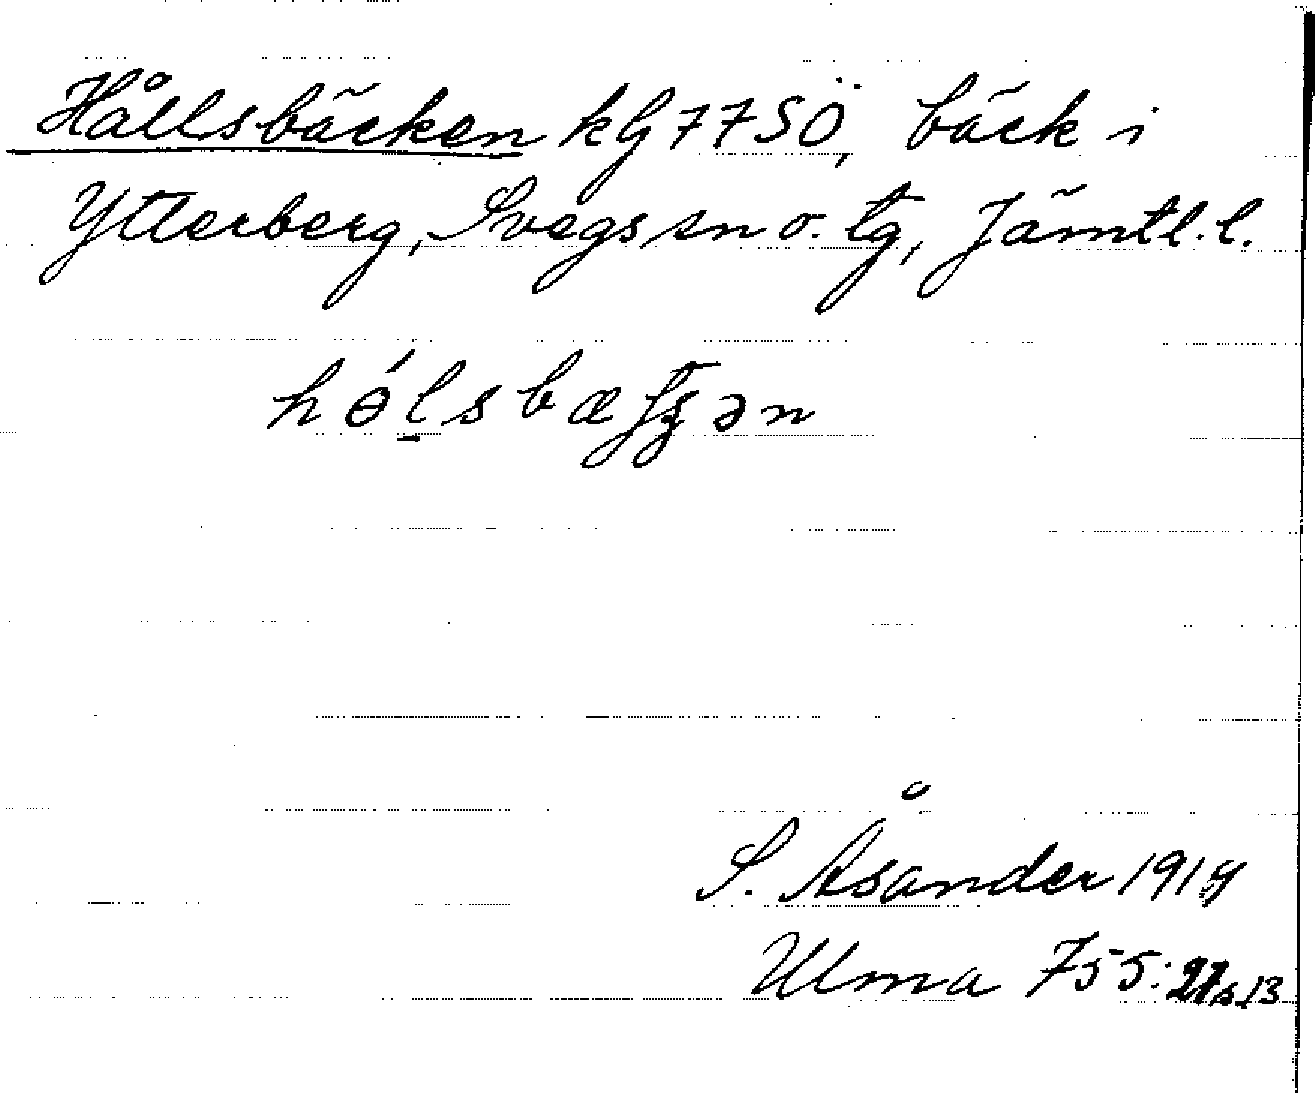 Hållsbäcken kG 77SÖ, bäck i
Ytterberg, Svegs sn o. tg, Jämtl. l.
hɵ́lsbæʃʒən
S. Åsander 1914
Ulma 755: